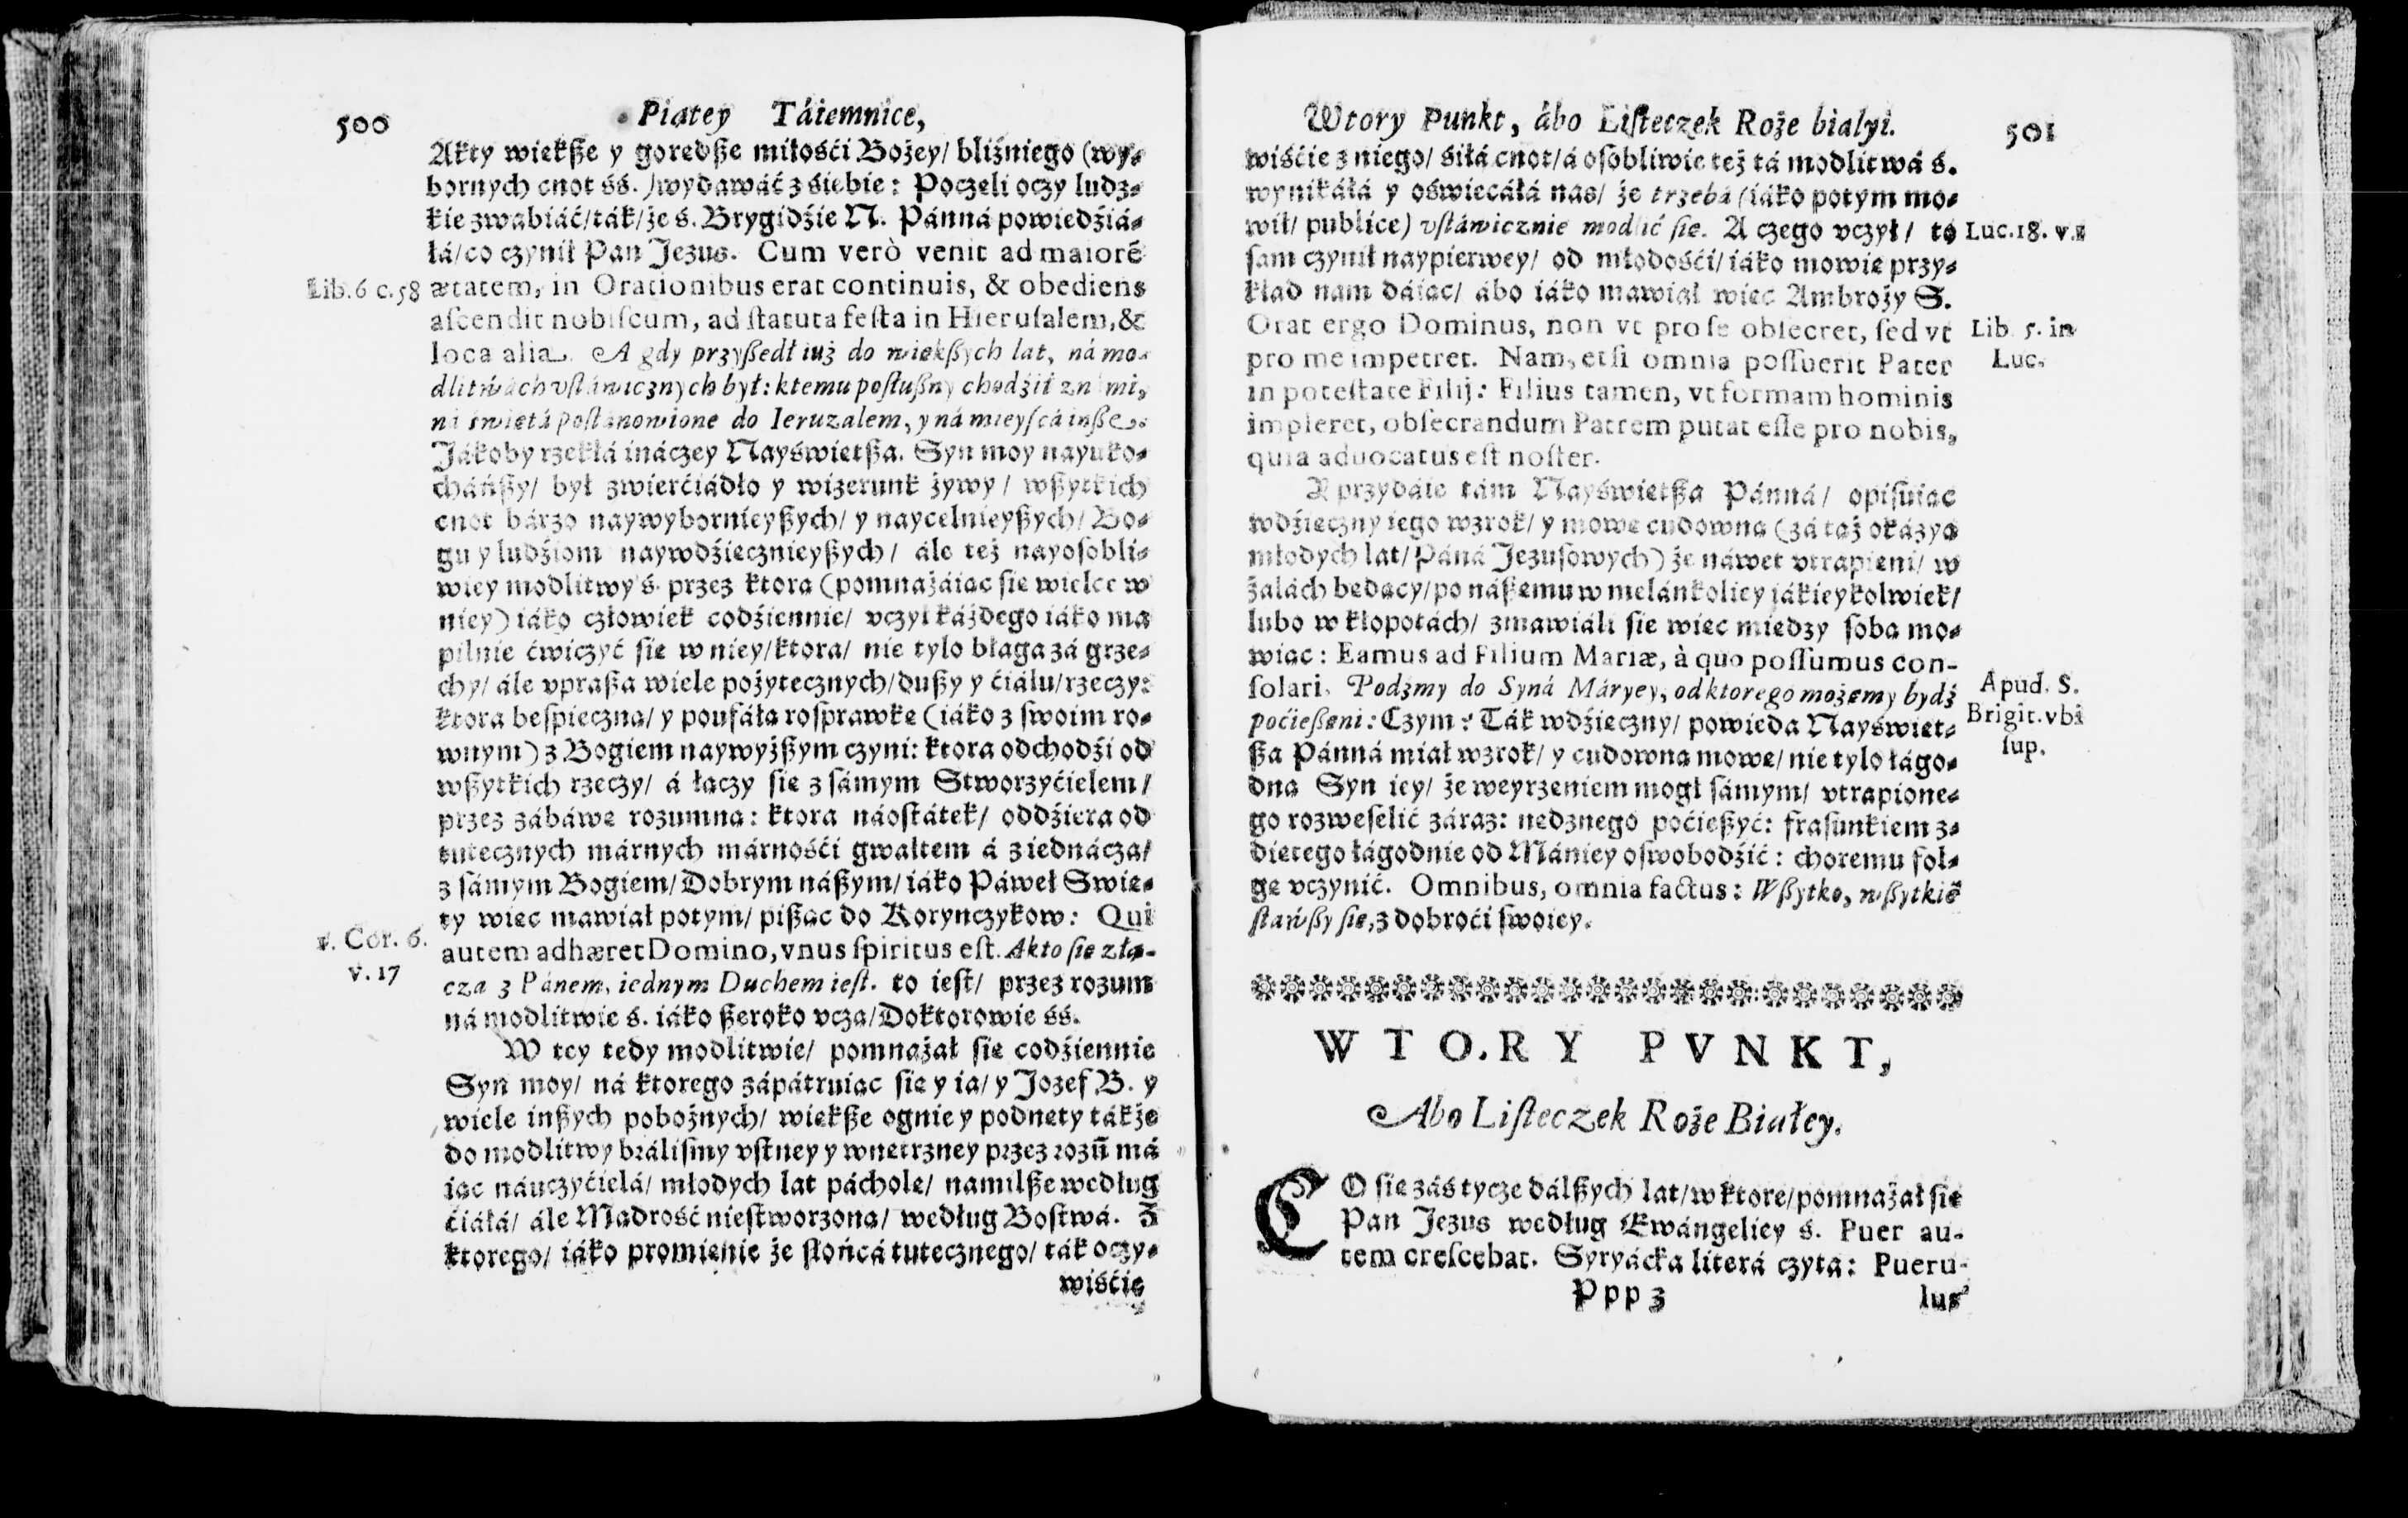 500
Piątey Táiemnice,
Akty większe y gorędsze miłośći Bożey/ bliźniego (wy-
bornych cnot śś.) /wydawáć z śiebie: Poczęli oczy ludz-
kie zwabiáć/ ták/ że s. Brygidźie N. Pánná powiedźiá-
łá/ co czynił Pan Jezus. Cum verò venit ad maiorẽ
Lib. 6 c. 58
ætatem, in Orationibus erat continuis, & obediens
aſcendit nobiſcum, ad ſtatuta feſta in Hieruſalem, &
loca alia. A gdy przyßedł iuż do więkßych lat, ná mo-
dlitwách vſtáwicznych był: k temu poſłußny chodźił z námi,
ná święta poſtánowione do Ieruzalem, y ná mieyſcá inße.
Jákoby rzekłá ináczey Nayświętßa. Syn moy nayuko-
cháńßy/ był zwierćiádło y wizerunk żywy/ wßytkich
cnot bárzo naywybornieyßych/ y naycelnieyßych/ Bo-
gu y ludźiom naywdźięcznieyßych/ ále też nayoſobli-
wiey modlitwy ś. przez ktorą (pomnażáiąc ſię wielce w
niey) iáko człowiek codźiennie/ vczył káżdego iáko ma
pilnie ćwiczyć ſię w niey/ ktora/ nie tylo błaga zá grze-
chy/ ále vpraßa wiele pożytecznych/ dußy y ćiáłu/ rzeczy:
ktora beſpieczną/ y poufáłą roſprawkę (iáko z ſwoim ro-
wnym) z Bogiem naywyżßym czyni: ktora odchodźi od
wßytkich rzeczy/ á łączy ſię z ſámym Stworzyćielem/
przez zábáwę rozumną: ktora náoſtátek/ oddźiera od
tutecznych márnych márnośći gwałtem á ziednácza/
z ſámym Bogiem/ Dobrym náßym/ iáko Páweł Swię-
ty więc mawiał potym/ pißąc do Korynczykow: Qui
1. Cor. 6.
v. 17
autem adhæret Domino, vnus ſpiritus eſt. A kto ſię złą-
cza z Pánem, iednym Duchem ieſt. to ieſt/ przez rozum
ná modlitwie ś. iáko ßeroko vczą/ Doktorowie śś.
W tey tedy modlitwie/ pomnażał ſię codźiennie
Syn moy/ ná ktorego zápátruiąc ſię y ia/ y Jozef B. y
wiele inßych pobożnych/ więkße ognie y podnęty tákże
do modlitwy bráliſmy vſtney y wnętrzney przez rozũ má
iąc náuczyćielá/ młodych lat páchole/ namilße według
ćiáłá/ ále Mądrość nieſtworzoną/ według Boſtwá. Z
ktorego/ iáko promienie ze ſłońcá tutecznego/ ták oczy-
wiśćie
Wtory Punkt, ábo Liſteczek Roże bialyi.
501
wiśćie z niego/ śiłá cnot/ á oſobliwie też tá modlitwá ś.
wynikáłá y oświecáłá nas/ że trzebá (iáko potym mo-
wił/ publice) vſtáwicznie modlić ſię. A czego vczył/ to
Luc. 18. v. 1
ſam czynił naypierwey/ od młodośći/ iáko mowię przy-
kład nam dáiąc/ ábo iáko mawiał więc Ambroży S.
Orat ergo Dominus, non vt pro ſe obſecret, ſed vt
Lib. 5. in
Luc.
pro me impetret. Nam, etſi omnia poſſuerit Pater
in poteſtate Filij: Filius tamen, vt formam hominis
impleret, obſecrandum Patrem putat eſſe pro nobis,
quia aduocatus eſt noſter.
A przydáie tám Nayświętßa Pánná/ opiſuiąc
wdźięczny iego wzrok/ y mowę cudowną (zá tąż okázyą
młodych lat/ Páná Jezuſowych) że náwet vtrapieni/ w
żalách będący/ po náßemu w melánkoliey iákieykolwiek/
lubo w kłopotách/ zmawiáli ſię więc między ſobą mo-
wiąc: Eamus ad Filium Mariæ, à quo poſſumus con-
ſolari. Podzmy do Syná Máryey, od ktorego możemy bydź
Apud. S.
Brigit. vbi
ſup.
poćießeni: Czym? Ták wdźięczny/ powieda Nayświęt-
ßa Pánná miał wzrok/ y cudowną mowę/ nie tylo łágo-
dną Syn iey/ że weyrzeniem mogł ſámym/ vtrapione-
go rozweſelić záraz: nędznego poćießyć: fraſunkiem z-
diętego łágodnie od Mániey oſwobodźić: choremu fol-
gę vczynić. Omnibus, omnia factus: Wßytko, wßytkiẽ
ſtawßy ſię, z dobroći ſwoiey.
WTORY PVNKT,
Abo Liſteczek Roże Białey.
CO ſię záś tycze dálßych lat/ w ktore/ pomnażał ſię
Pan Jezus według Ewángeliey ś. Puer au-
tem creſcebat. Syryácka literá czyta: Pueru-
Ppp 3
lus